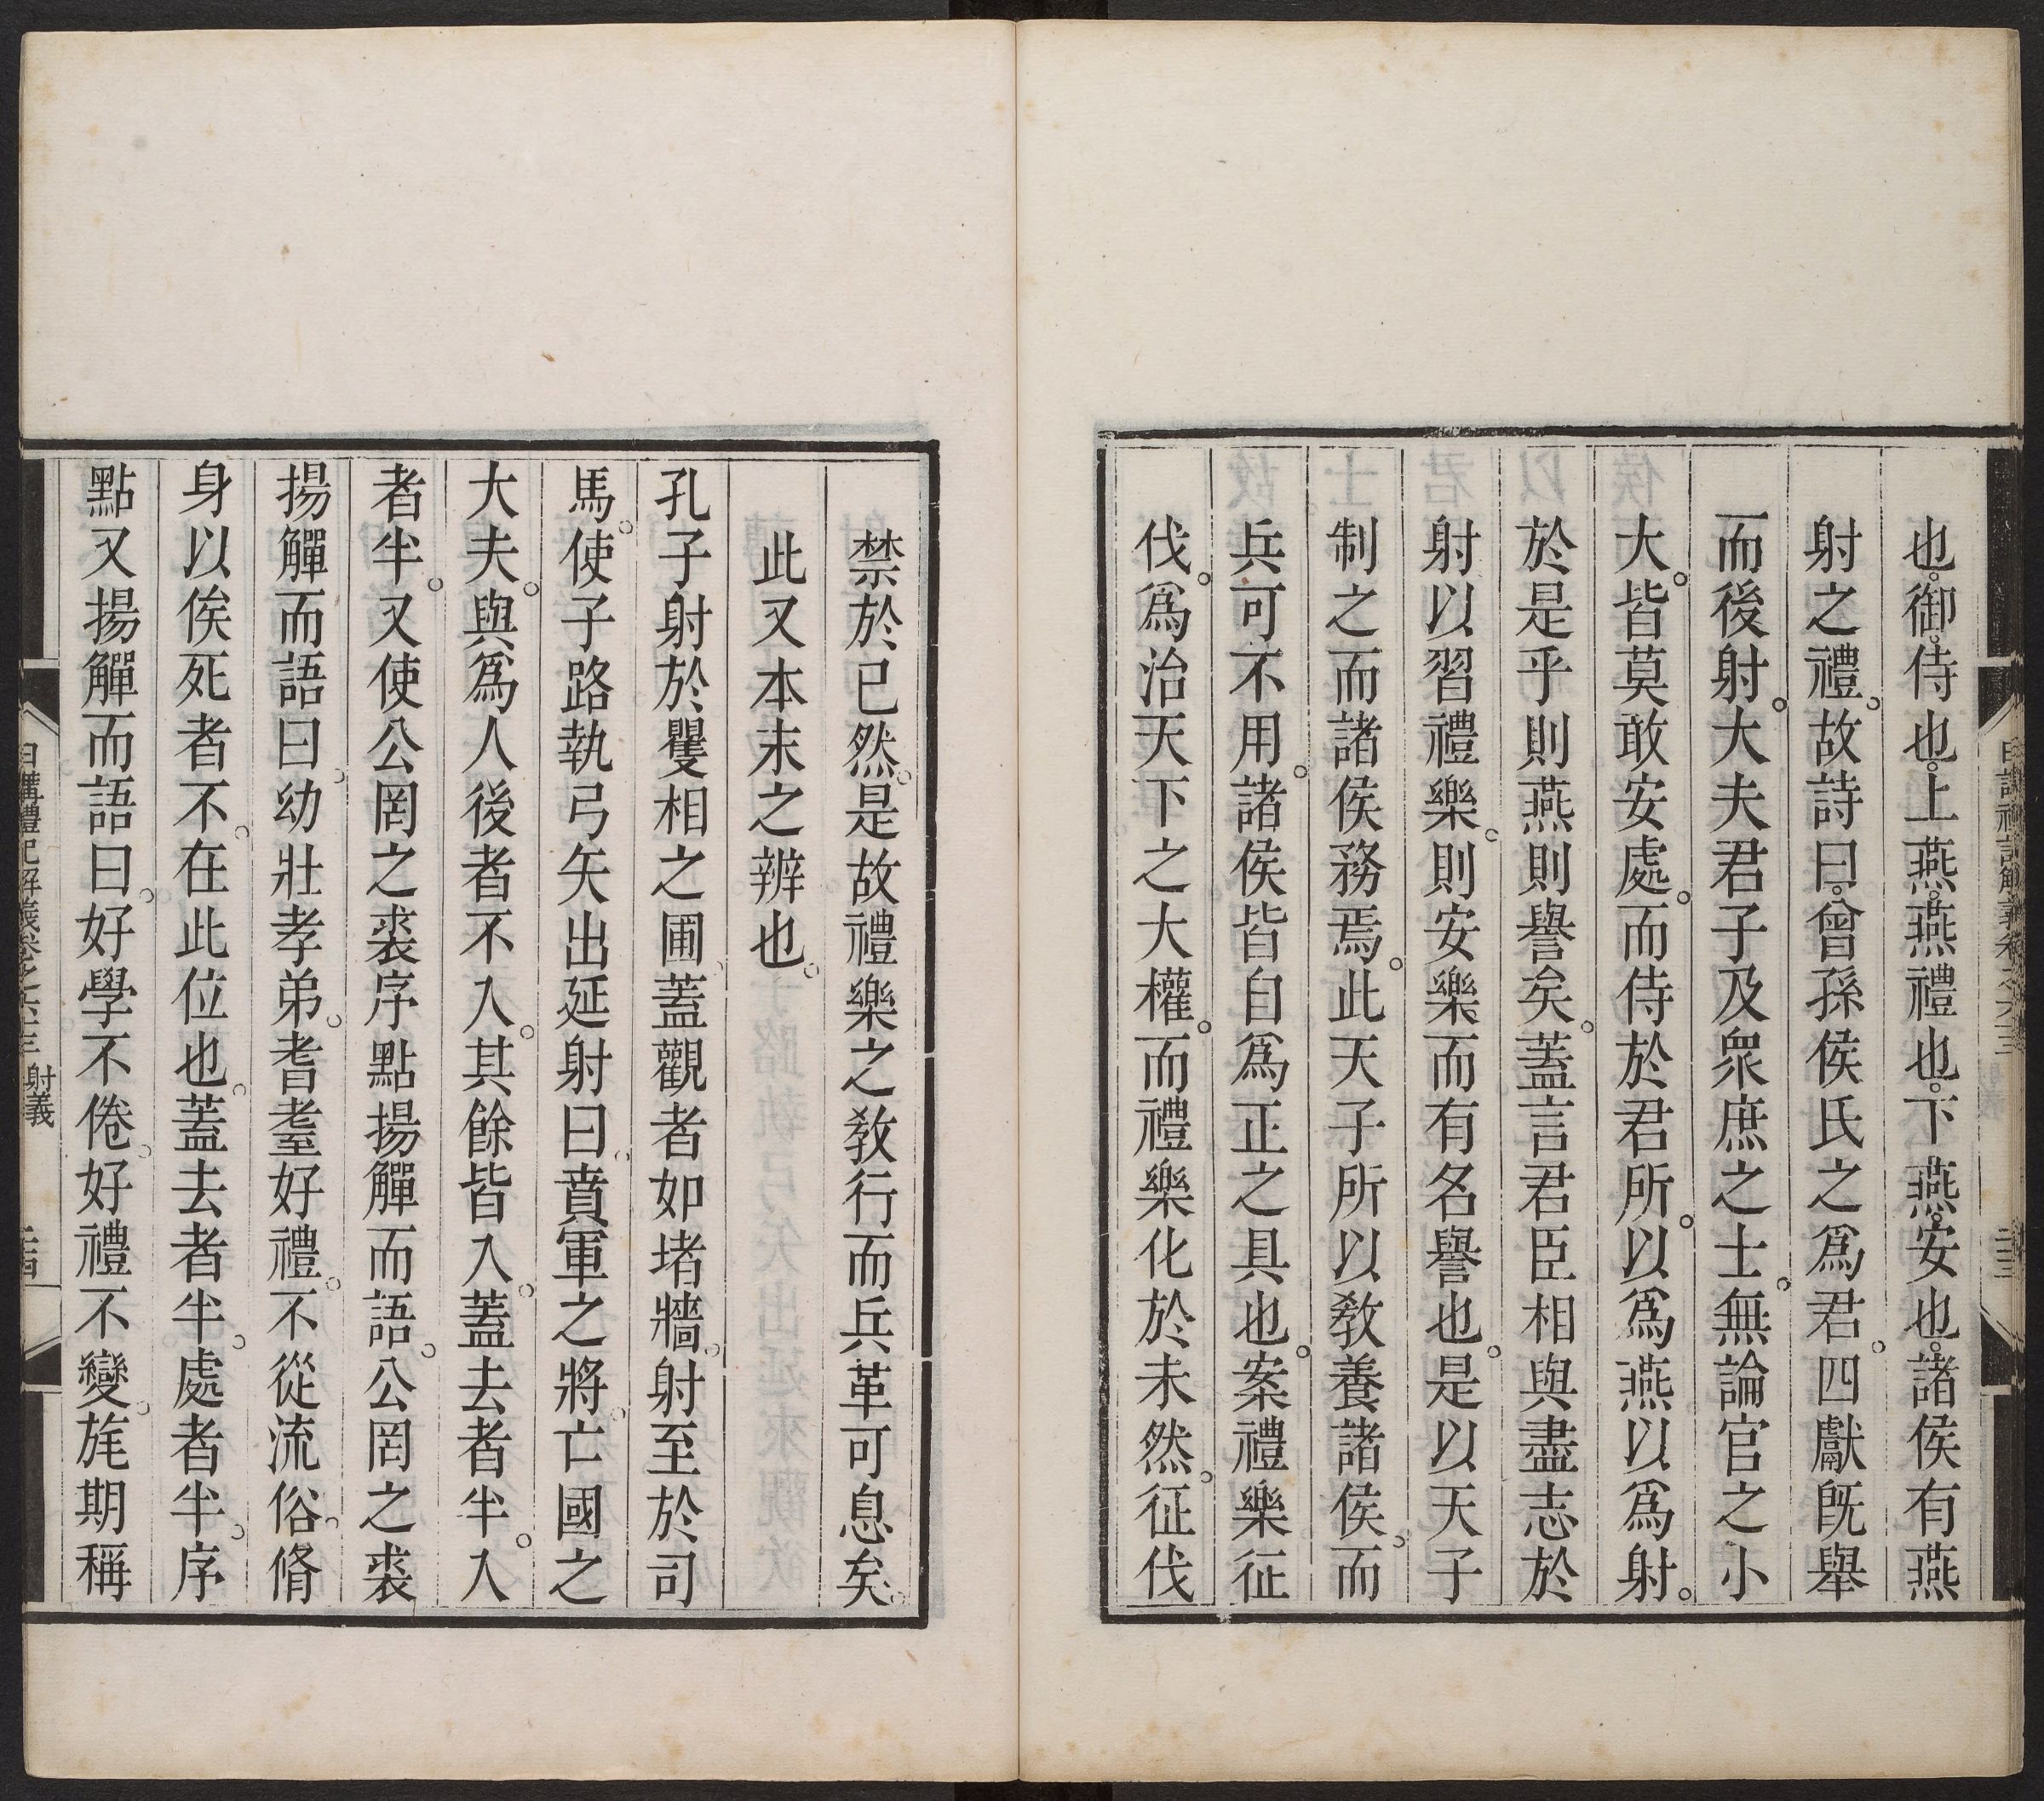 也。御。侍也。上燕。燕禮也。下燕。安也。諸侯有燕
射之禮。故詩曰。曾孫侯氏之爲君。四獻旣舉
而後射。大夫君子及衆庶之士。無論官之小
大。皆莫敢安處。而侍於君所。以爲燕以爲射。
於是乎則燕則譽矣。蓋言君臣相與盡志於
射以習禮樂。則安樂而有名譽也。是以天子
制之而諸侯務焉。此天子所以敎養諸侯。而
兵可不用。諸侯皆自爲正之具也。案禮樂征
伐。爲治天下之大權。而禮樂化於未然。征伐
禁於已然。是故禮樂之敎行而兵革可息矣。
此又本末之辨也。
孔子射於矍相之圃。蓋觀者如堵牆。射至於司
馬。使子路執弓矢出延射曰。賁軍之將。亡國之
大夫。與爲人後者不入。其餘皆入。蓋去者半。入
者半。又使公罔之裘序點揚觶而語。公罔之裘
揚觶而語曰。幼壯孝弟。耆耋好禮。不從流俗。脩
身以俟死者不。在此位也。蓋去者半。處者半。序
點又揚觶而語曰。好學不倦。好禮不變。旄期稱
日講禮記解義卷之六十三 射義